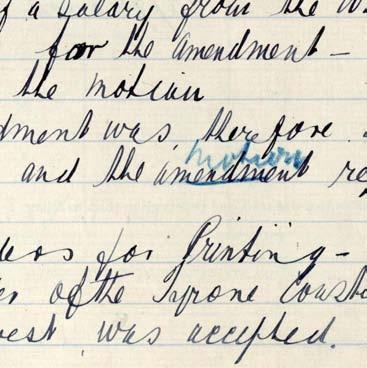 f a salary from the
for the amendment –
the motion
dment was therefore
motion
and the amendment re
for Printing –
of the Tyrone Const
was accepted.